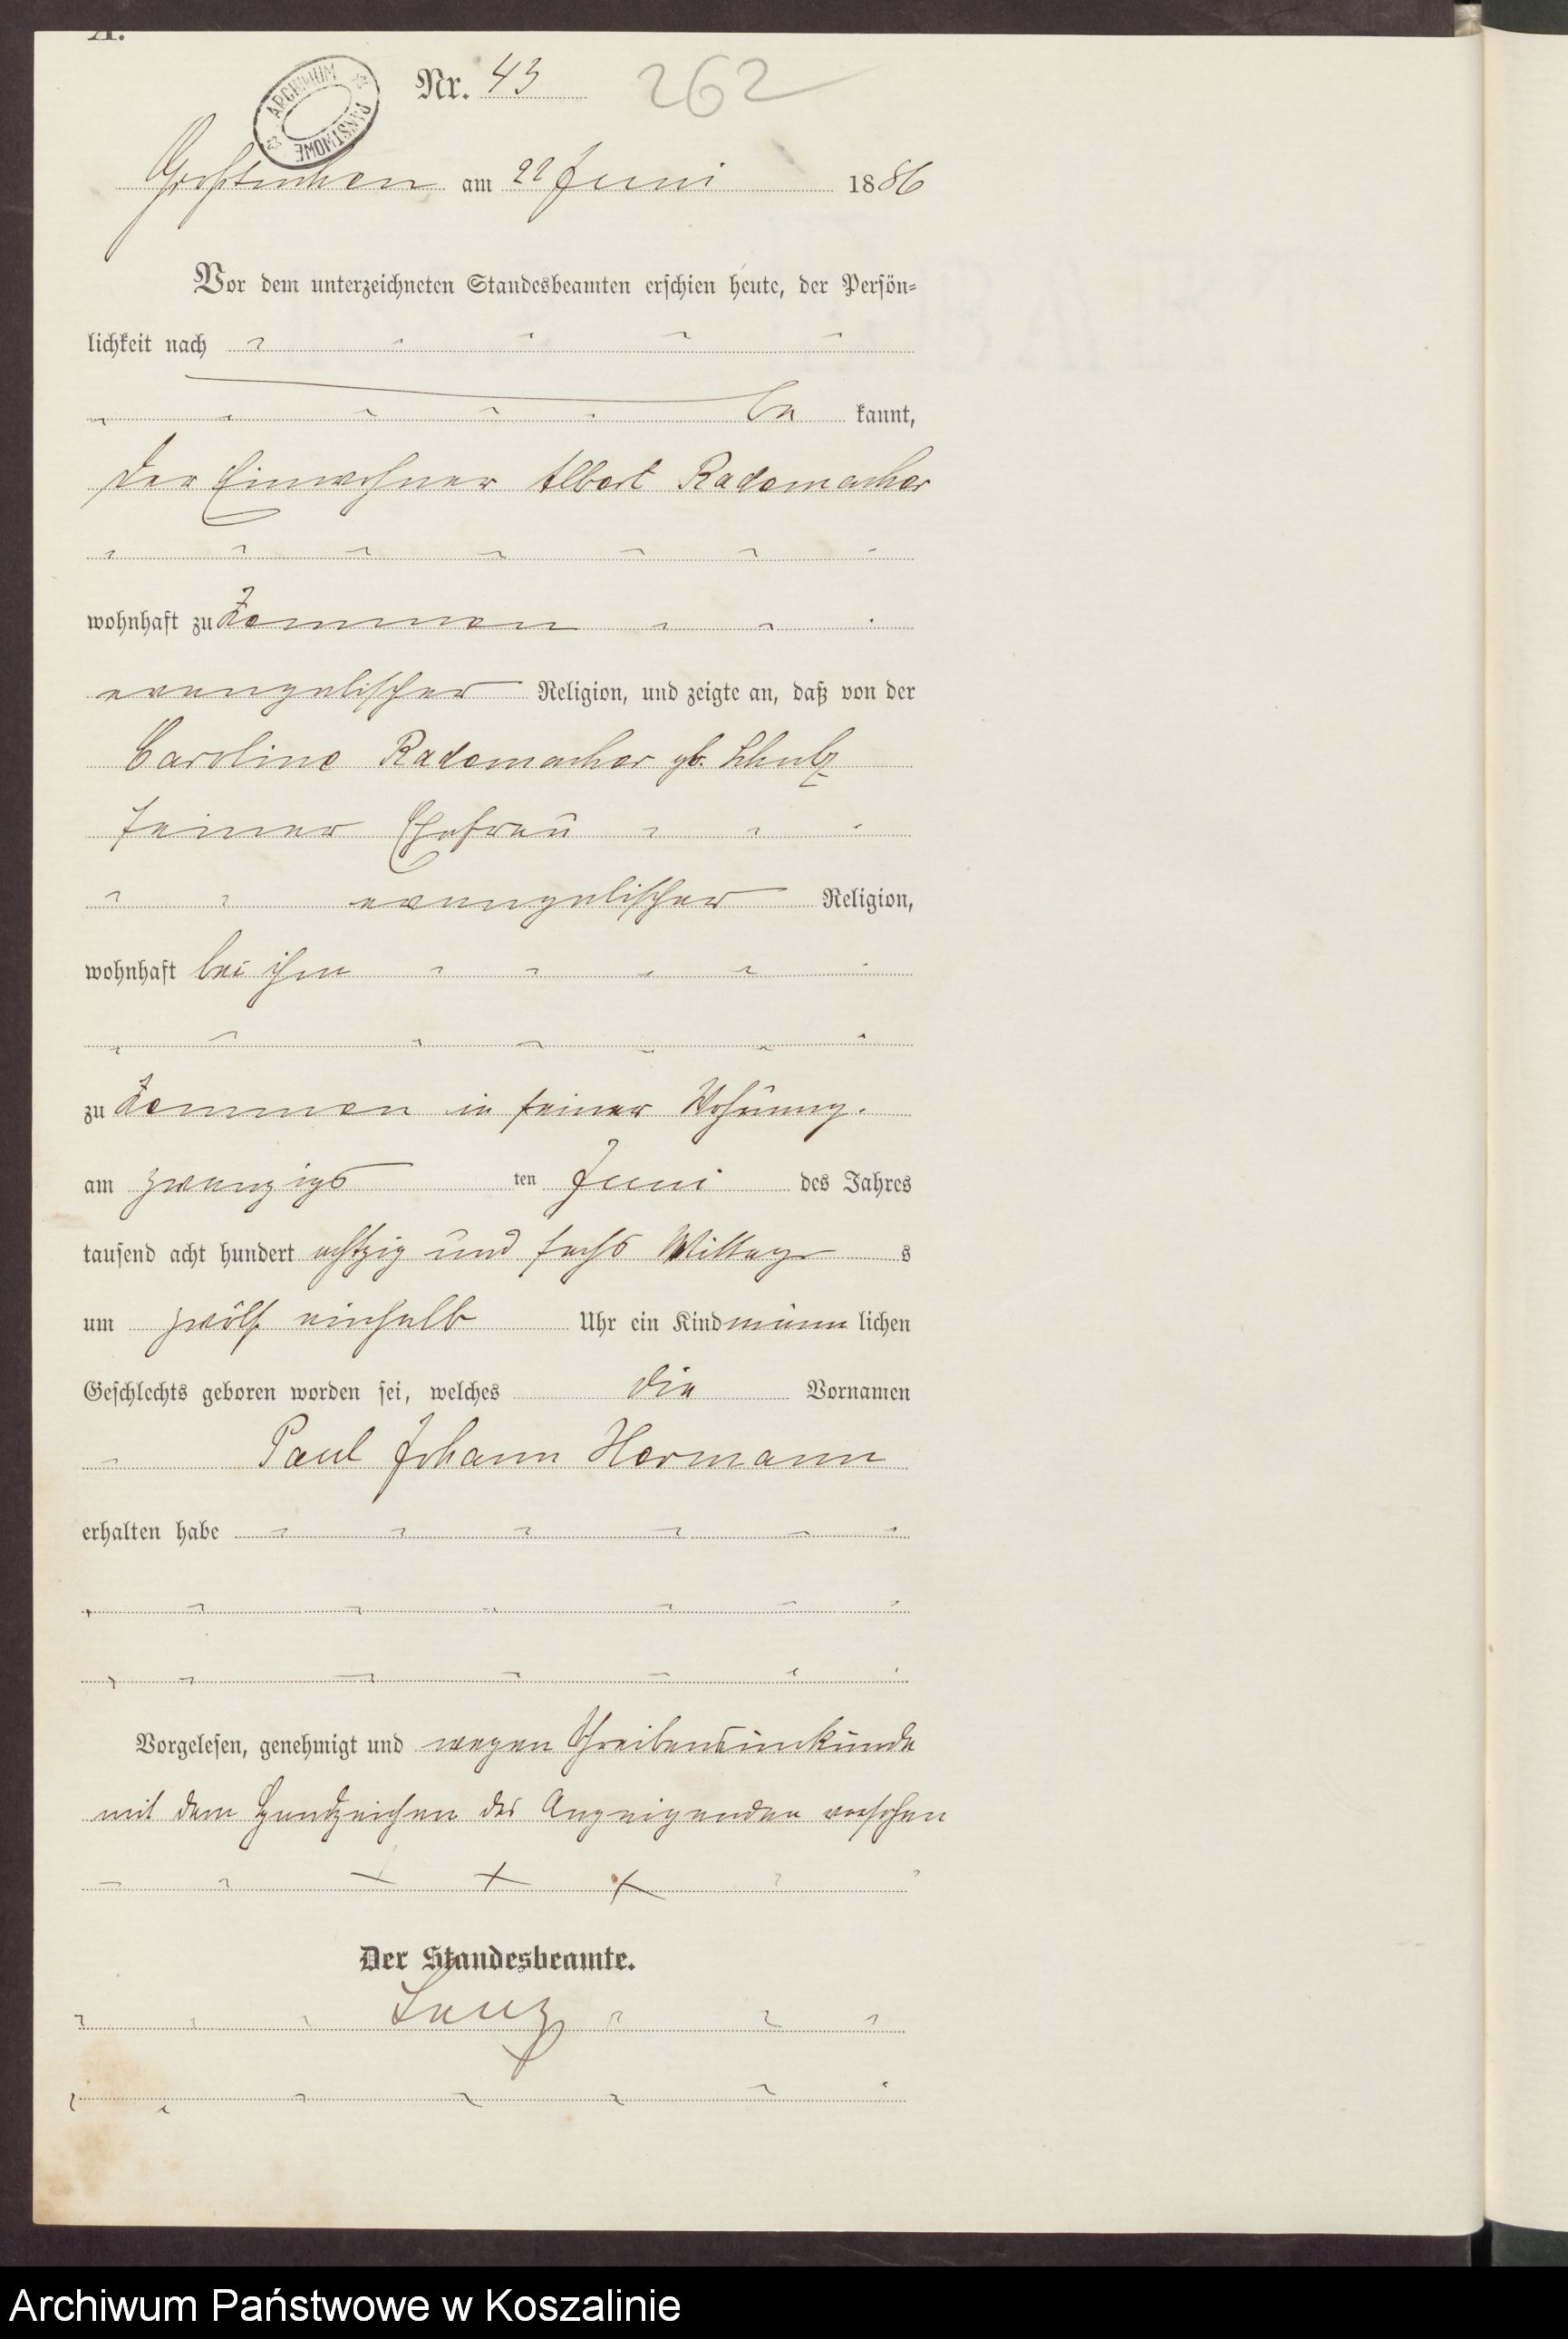 A.
ARCHIWUM PAŃSTWOWE
Nr. 43 262
Großtuchen am 22 Juni 1886
Vor dem unterzeichneten Standesbeamten erschien heute, der Persön-
lichkeit nach
be kannt,
der Einwohner Albert Rademacher
wohnhaft zu Zemmen
evangelischer Religion, und zeigte an, daß von der
Caroline Rademacher gb. Schulz
seiner Ehefrau
evangelischer Religion,
wohnhaft bei ihm
zu Zemmen in seiner Wohnung.
am zwanzigs ten Juni des Jahres
tausend acht hundert achtzig und sechs Mittags s
um zwölf einhalb Uhr ein Kind männ lichen
Geschlechts geboren worden sei, welches die Vornamen
Paul Johann Hermann
erhalten habe
Vorgelesen, genehmigt und wegen Schreibensunkunde
mit dem Handzeichen des Anzeigenden versehen
+ + +
Der Standesbeamte.
Archiwum Państwowe w Koszalinie